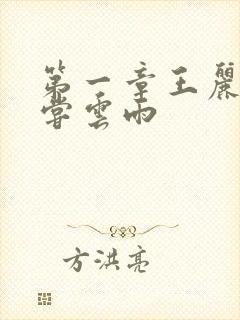 第一章王麗
嘗雲雨
方洪亮